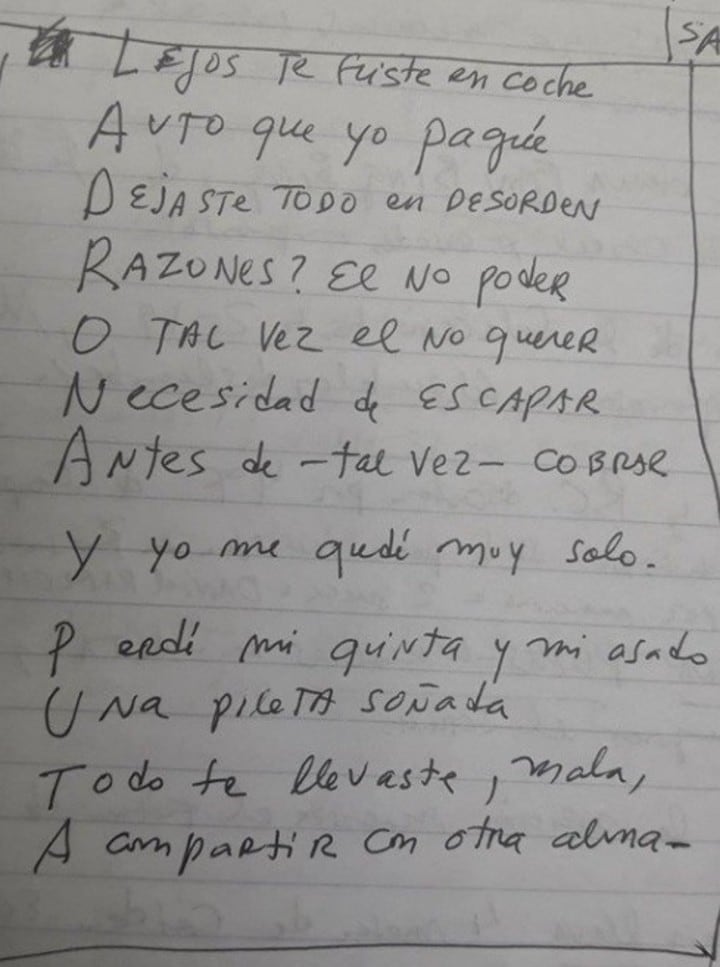 SA
LEJOS Te fuiste en coche
AUTO que yo pagué
DEJASTE TODO en DESORDEN
RAZONES? El NO podeR
O TAL Vez el No quereR
Necesidad de ESCAPAR
ANtes de -tal vez- COBRAR
Y yo me qudé muy solo.
Perdí mi quinta y mi asado
UNa pileTA soñada
Todo te llevaste, mala,
A compartiR con otra alma-